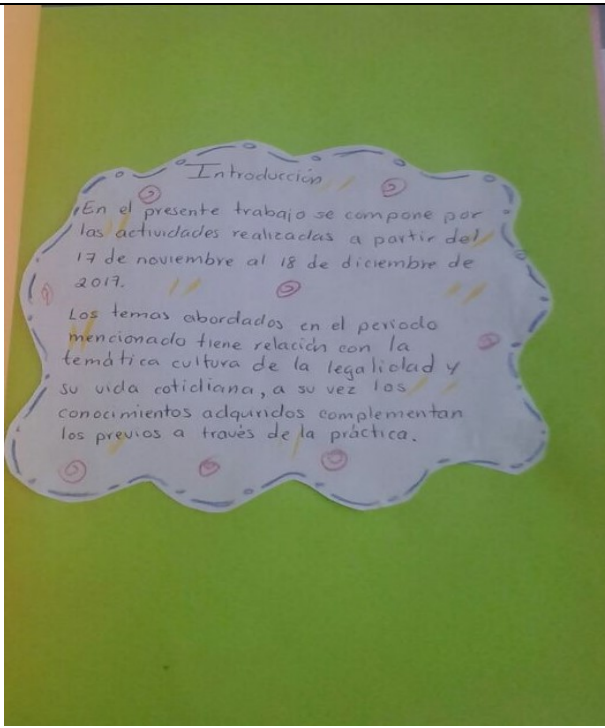 Introducción
En el presente trabajo se compone por
las actividades realizadas a partir del
17 de noviembre al 18 de diciembre de
2017.
Los temas abordados en el periodo
mencionado tiene relación con la
temática cultura de la legalidad y
su vida cotidiana, a su vez los
conocimientos adquiridos complementan
los previos a través de la práctica.